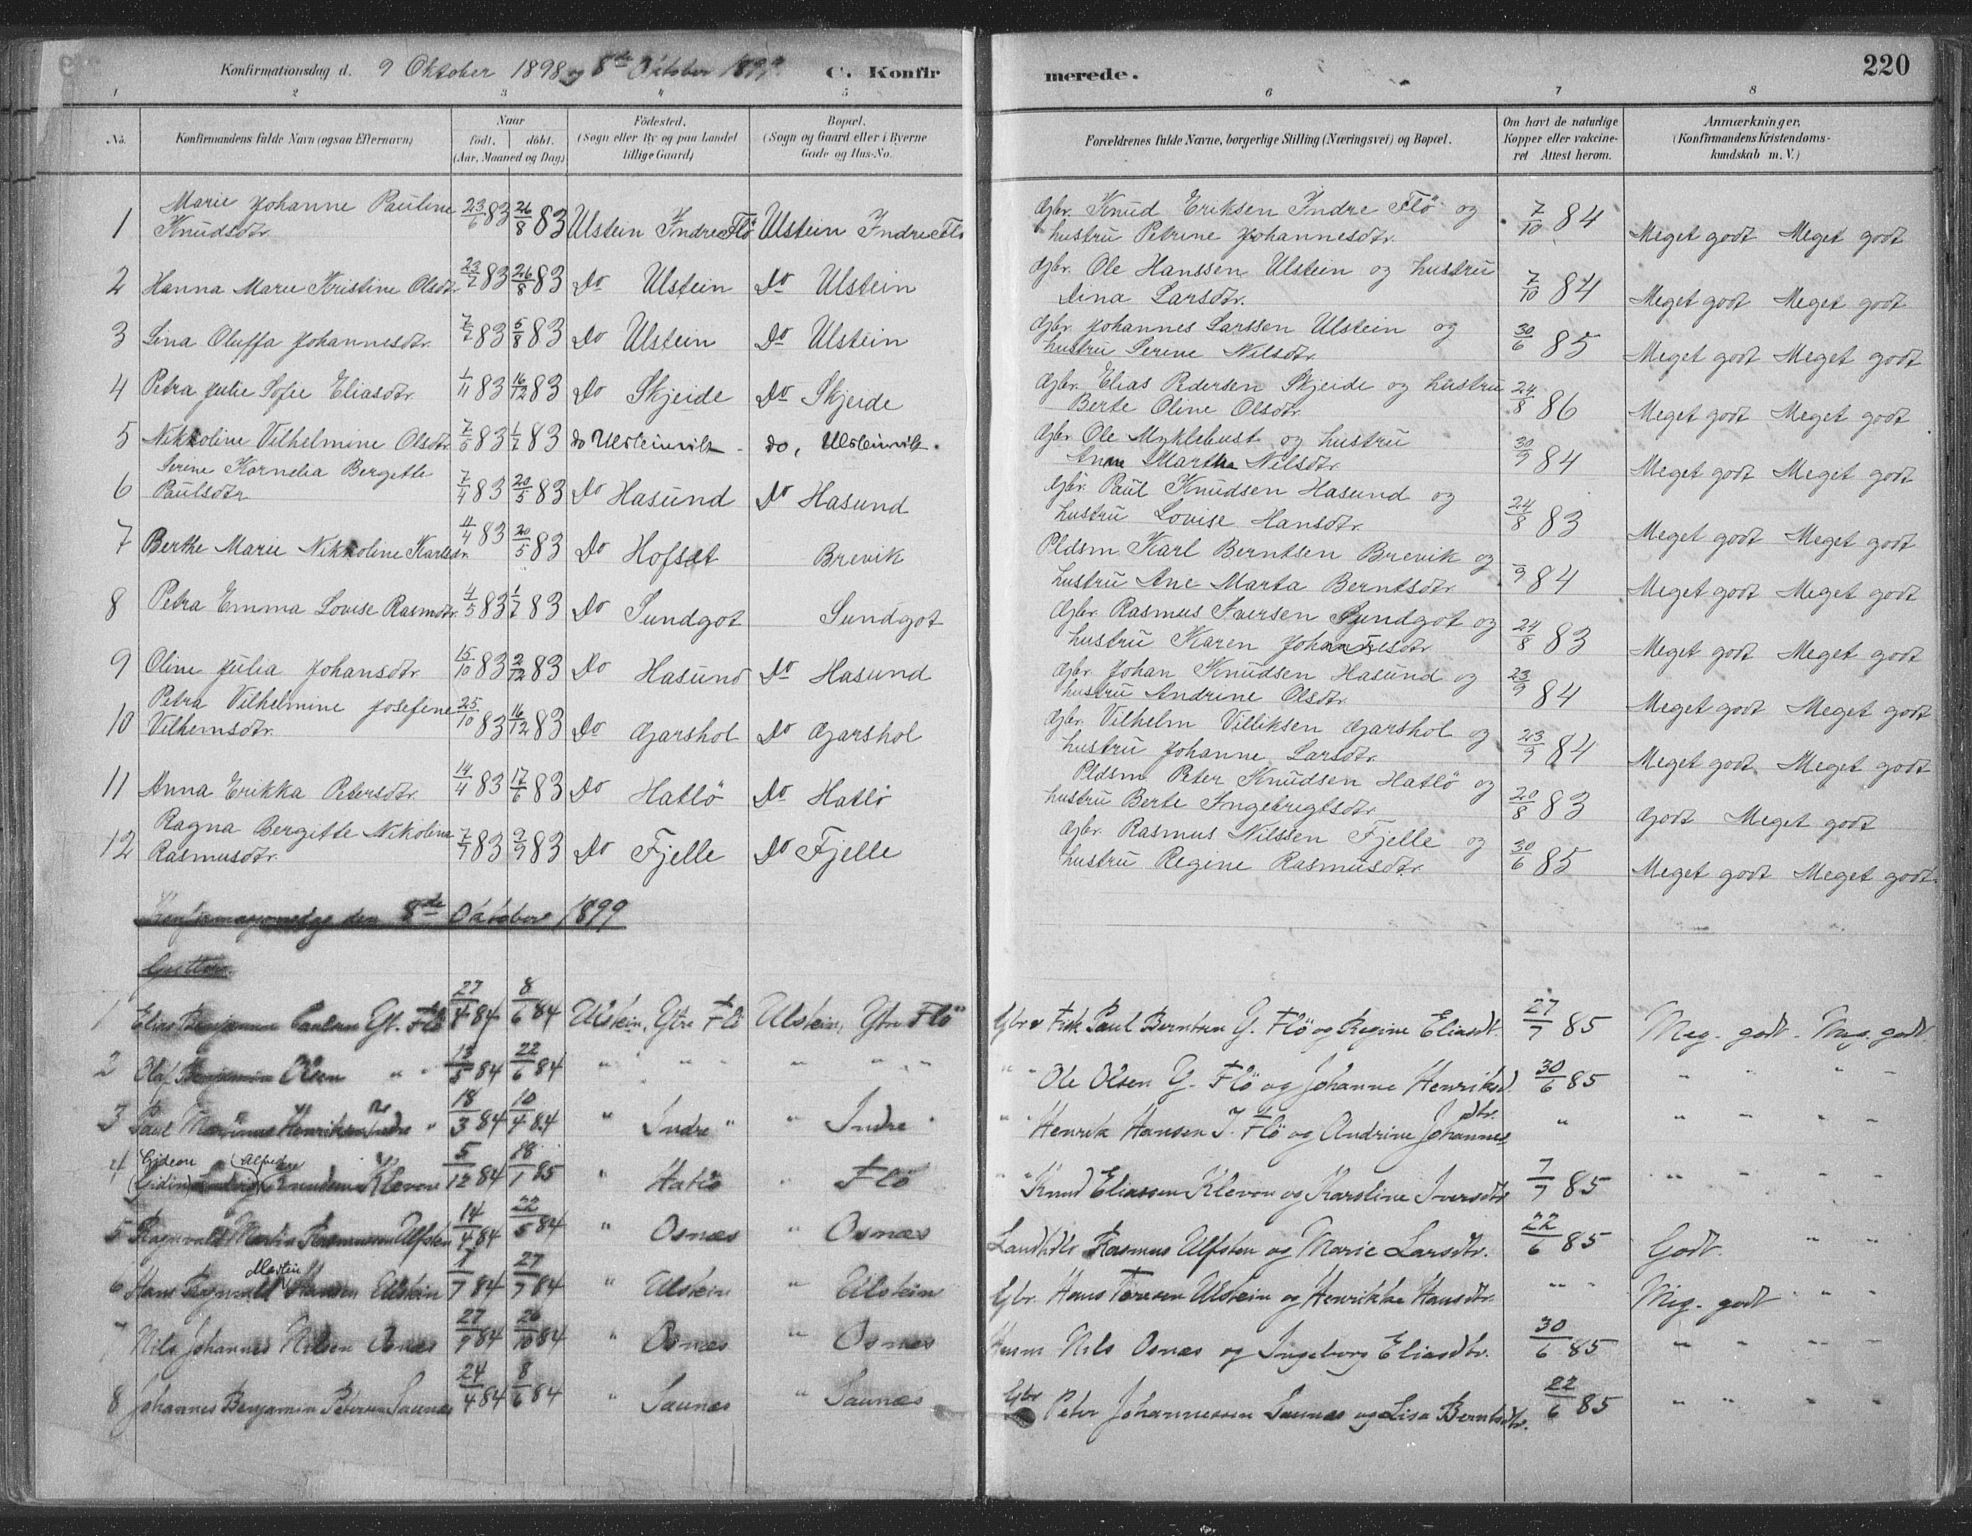 Konfirmationsdag d. 9 Oktober 1898 og 8de Oktober 1899. C. Konfir merede. 220
1 2 3 4 5 6 7 8
No. Konfirmandens fulde Navn (ogsaa Efternavn) Naar født. døbt. (Aar, Maaned og Dag) Fødested. (Sogn eller By og paa Landet tillige Gaard) Bopæl. (Sogn og Gaard eller i Byerne Gade og Hus-No. Forældrenes fulde Navne, borgerlige Stilling (Næringsvei) og Bopæl. Om havt de naturlige Kopper eller vakcineret Attest herom. Anmærkninger, (Konfirmandens Kristendomskundskab m. V.)
1 Marie Johanne Pauline Knudsdtr. 23/6 83 26/8 83 Ulstein Indre Flö Ulstein Indre Flö Gbr. Knud Eriksen Indre Flö og hustru Petrine Johannesdtr. 7/10 84 Meget godt Meget godt
2 Hanna Marie Kristine Olsdtr. 23/7 83 26/8 83 Do Ulstein Do Ulstein Gbr. Ole Hanssen Ulstein og hustru Dina Larsdtr. 7/10 84 Meget godt Meget godt
3 Lina Oluffa Johannesdtr. 7/7 83 5/8 83 Do Ulstein Do Ulstein Gbr. Johannes Larssen Ulstein og hustru Serine Nilsdtr. 30/6 85 Meget godt Meget godt
4 Petra Julie Sofie Eliasdtr. 1/11 83 16/12 83 Do Skjeide Do Skjeide Gbr. Elias Pedersen Skjeide og hustru Berte Oline Olsdtr. 24/8 86 Meget godt Meget godt
5 Nikoline Vilhelmine Olsdtr. 7/5 83 1/7 83 do Ulsteinvik do, Ulsteinvik. Gbr. Ole Myklebust og hustru Anne Martha Nilsdtr. 30/9 84 Meget godt Meget godt
6 Serine Kornelia Bergitte Paulsdtr. 7/4 83 20/5 83 Do Hasund Do Hasund Gbr. Paul Knudsen Hasund og hustru Lovise Hansdtr. 24/8 83 Meget godt Meget godt
7 Berthe Marie Nikoline Karlsdtr. 4/4 83 20/5 83 Do Hofset Brevik Pldsm Karl Berntsen Brevik og hustru Ane Marta Berntsdtr. /9 84 Meget godt Meget godt
8 Petra Emma Lovise Rasmdtr. 4/5 83 1/7 83 Do Sundgot Sundgot Gbr. Rasmus Iversen Sundgot og hustru Karen Johannesdtr. 24/8 83 Meget godt Meget godt
9 Oline Julia Johansdtr. 15/10 83 2/12 83 Do Hasund Do Hasund Gbr. Johan Knudsen Hasund og hustru Andrine Olsdtr. 23/9 84 Meget godt Meget godt
10 Petra Vilhelmine Josefine Vilhemsdtr. 25/10 83 16/12 83 Do Garshol Do Garshol Gbr. Vilhelm Villiksen Garshol og hustru Johanne Larsdtr. 23/9 84 Meget godt Meget godt
11 Anna Erikka Petersdtr. 14/4 83 17/6 83 Do Hatlö Do Hatlö Pldsm Peter Knudsen Hatlö og hustru Berte Ingebrigtsdtr. 20/8 83 Godt Meget godt
12 Ragna Bergitte Nikoline Rasmusdtr. 7/7 83 9/9 83 Do Fjelle Do Fjelle Gbr. Rasmus Nilssen Fjelle og hustru Regine Rasmusdtr. 30/6 85 Meget godt Meget godt
den 8de Oktober 1899
Gutter.
1 Elias Benjamin Paulsen Yt. Flö 27/4 84 8/6 84 Ulstein, Ytre Flö Ulstein, Ytre Flö Gbr. Fisk. Paul Berntsen Y. Flö og Regine Eliasdt. 27/7 85 Meg. godt. Meg. godt.
2 Olaf Benjamin Olsen " " 13/5 84 22/6 84 " " " " " " " " Ole Olsen Y. Flö og Johanne Henriksd. 30/6 85 " " " "
3 Paul Martinus Henriksen Indre " 18/3 84 10/4 84 " Indre " " Indre " " " Henrik Hansen I. Flö og Andrine Johannesdtr. " " " " "
4 Gideon (Alfred) Knudsen Klevon 5/12 84 18/1 85 " Hatlö " Flö " " Knud Eliassen Klevon og Karoline Iversdtr. 7/7 85 " " " "
5 Ragnvald Martin Rasmussen Ulfsten 14/4 84 22/5 84 " Osnæs " Osnæs Landhdlr Rasmus Ulfsten og Marie Larsdtr. 22/6 85 Godt. " "
6 Hans Ragnvald Martin Hansen Ulstein 1/7 84 27/7 84 " Ulstein " Ulstein Gbr. Hans Ulstein og Henrikke Hansdtr. " " " Meg. godt " "
7 Nils Johannes Nilsen Osnæs 27/9 84 26/10 84 " Osnæs " Osnæs Husm Nils Osnæs og Ingeborg Eliasdtr. 30/6 85 " " " "
8 Johannes Benjamin Petersen Saunæs 24/4 84 8/6 84 " Saunæs " Saunæs Gbr Peter Johannessen Saunæs og Lisa Berntsdtr. 22/6 85 " " " "